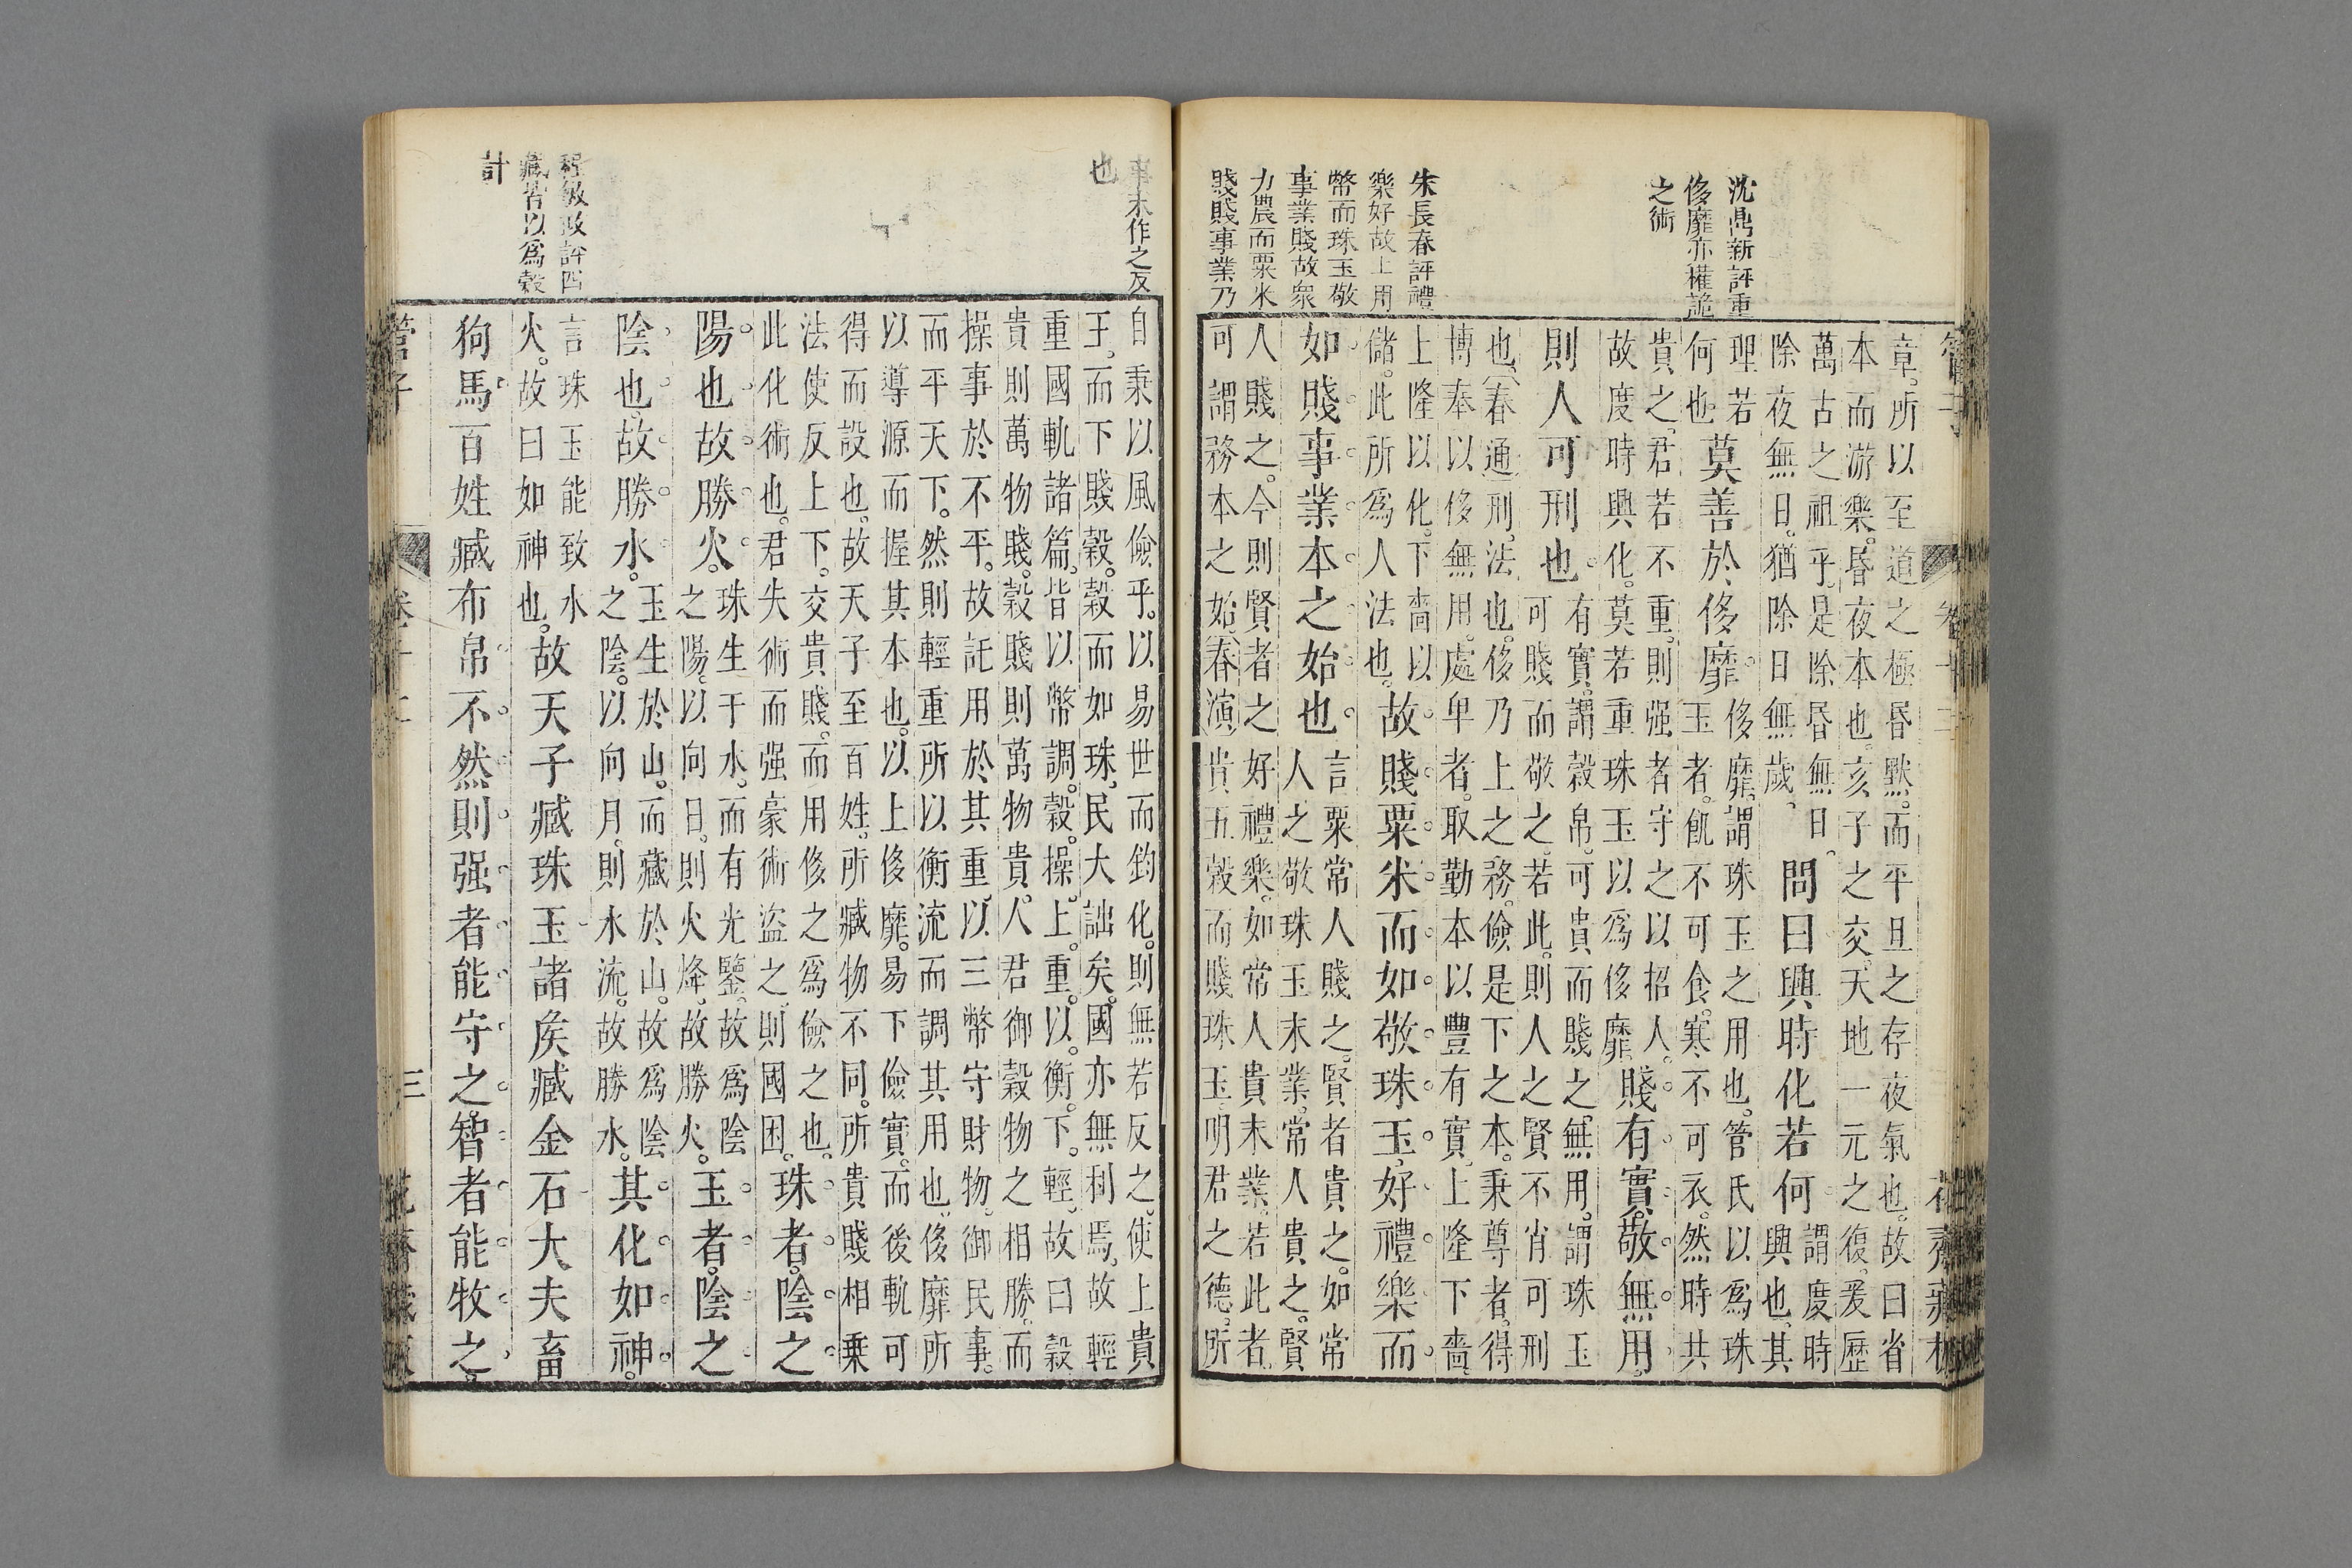 沈鼎新評重
侈靡亦權詭
之術
朱長春評禮
樂好故上用
幣而珠玉敬
事業賤故衆
力農而粟米
賤賤事業乃
章。所以至道之極昏默。而平旦之存夜氣也。故曰省
本而游樂。昏夜本也。亥子之交。天地一元之復。爰歷
萬古之祖乎。是除昏無日。
除夜無日。猶除日無歲。
問曰興時化若何
謂度時
興也。其
理若
何也
莫善於侈靡
侈靡。謂珠玉之用也。管氏以爲珠
玉者。飢不可食。寒不可衣。然時共
貴之。君若不重。則强者守之以招人。
故度時興化。莫若重珠玉以爲侈靡
賤有實。敬無用。
則人可刑也。
有實。謂穀帛。可貴而賤之。無用。謂珠玉
可賤而敬之。若此。則人之賢不肖可刑
也(春通)刑。法也。侈乃上之務。儉是下之本。秉尊者。得
博奉以侈無用。處卑者。取勤本以豐有實。上隆下嗇。
上隆以化。下嗇以
儲。此所爲人法也。
故賤粟米而如敬珠玉。好禮樂而
如賤事業本之始也。
言粟常人賤之。賢者貴之。如常
人之敬珠玉末業。常人貴之。賢
人賤之。今則賢者之好禮樂。如常人貴末業。若此者。
可謂務本之始(春演)貴五穀而賤珠玉。明君之德。所
事末作之反
也
程敏政評四
臧皆以爲穀
計
自秉以風儉乎。以易世而鈞化。則無若反之。使上貴
王。而下賤穀。穀而如珠。民大詘矣。國亦無利焉。故輕
重國軌諸篇。皆以幣調。穀。操。上。重。以。衡。下。輕。故曰穀
貴則萬物賤。穀賤則萬物貴。人君御穀物之相勝。而
操事於不平。故託用於其重。以三幣守財物。御民事。
而平天下。然則輕重所以衡流而調其用也。侈靡所
以導源而握其本也。以上侈靡。易下儉實。而後軌可
得而設也。故天子至百姓。所臧物不同。所貴賤相乗
法使反上下。交貴賤。而用侈之爲儉之也。
此化術也。君失術而强豪術盜之。則國困。
珠者。陰之
陽也。故勝火。
珠生于水。而有光鑒。故爲陰
之陽。以向日。則火烽。故勝火。
玉者。陰之
陰也。故勝水。
玉生於山。而藏於山。故爲陰
之陰。以向月。則水流。故勝水。
其化如神。
言珠玉能致水
火。故曰如神也。
故天子臧珠玉諸矦臧金石大夫畜
狗馬百姓臧布帛不然則强者能守之智者能牧之。
管子
三